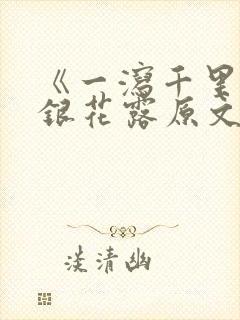 《一泻千里
银花露原文
淡清幽